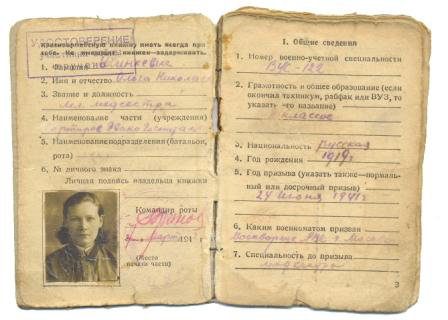 УДОСТОВЕРЕНИЕ
Красноармейскую книжку иметь всегда при
себе. Не имеющих книжек задерживать.
1. Фамилия
2. Имя и отчество Ольга Николаевна
3. Звание и должность
мл. медсестра
4. Наименование части (учреждения)
5. Наименование подразделения (батальон,
рота)
6. № личного знака
Личная подпись владельца книжки
Командир роты
март 194
(Место
печати части)
I. Общие сведения
1. Номер военно-учетной специальности
ВУС-122
2. Грамотность и общее образование (если
окончил техникум, рабфак или ВУЗ, то
указать название)
классов
3. Национальность русская
4. Год рождения 1919 г.
5. Год призыва (указать также нормаль-
ный или досрочный призыв)
24 июня 1941 г.
6. Каким военкоматом призван
Москворецк РВК г. Москвы
7. Специальность до призыва
3